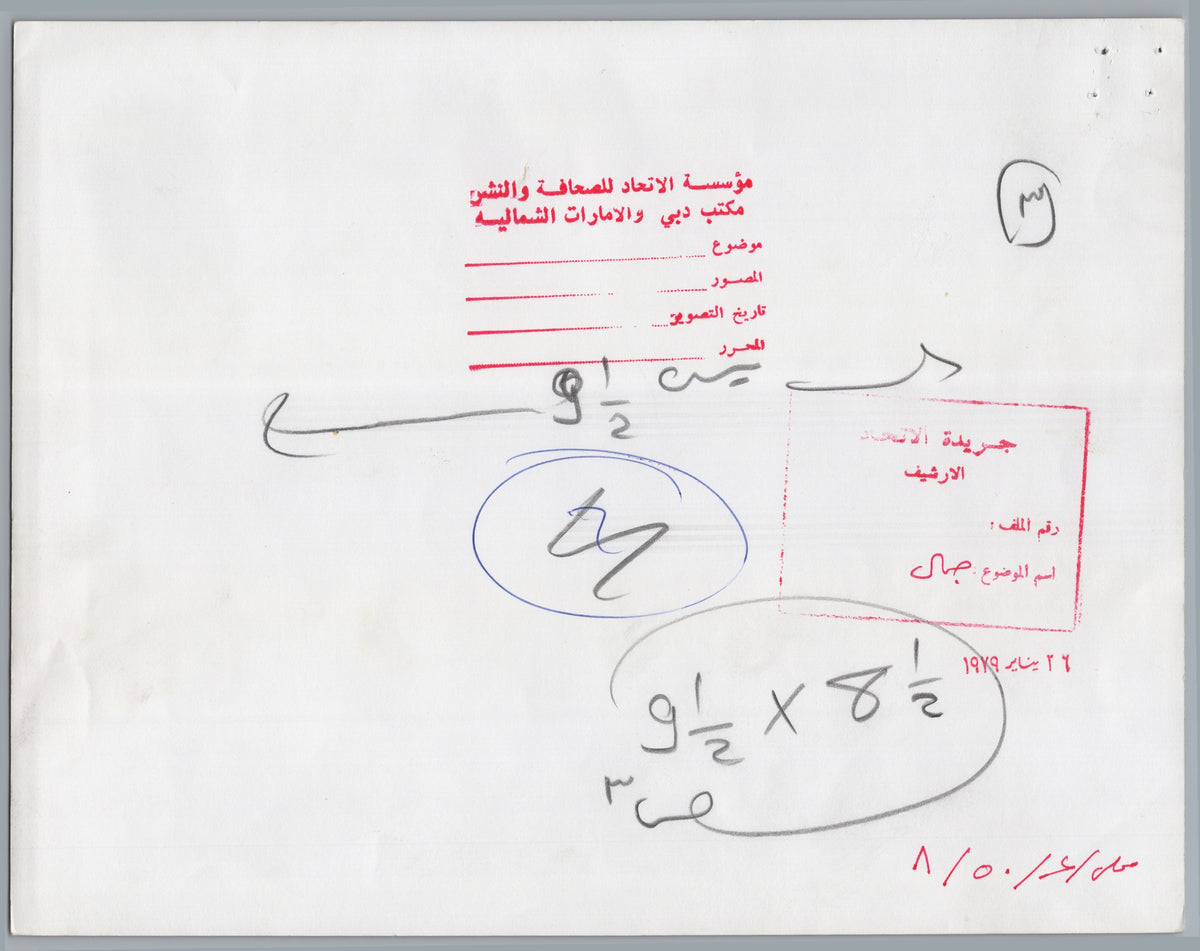 ٣
مؤسسة الاتحاد للصحافة والنشر
مكتب دبي والامارات الشمالية
موضوع
المصور
تاريخ التصوير
المحرر
9 1/2 س
جريدة الاتحاد
الارشيف
رقم الملف :
اسم الموضوع :
٢٦ يناير ١٩٧٩
9 1/2 X 8 1/2
ص ٣